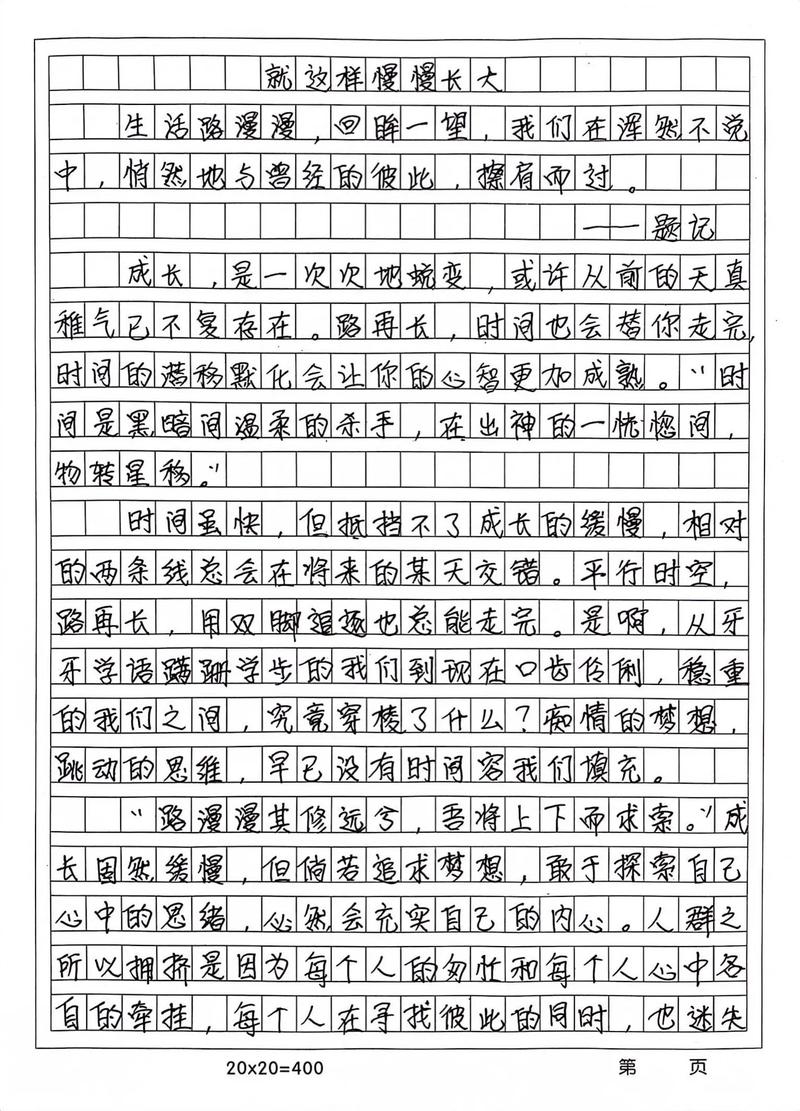 就这样慢慢长大
生活路漫漫，回眸一望，我们在浑然不觉
中，悄然地与曾经的彼此，擦肩而过。
——题记
成长，是一次次地蜕变，或许从前的天真
稚气已不复存在。路再长，时间也会替你走完，
时间的潜移默化会让你的心智更加成熟。“时
间是黑暗间温柔的杀手，在出神的一恍惚间，
物转星移。”
时间虽快，但抵挡不了成长的缓慢，相对
的两条线总会在将来的某天交错。平行时空，
路再长，用双脚追逐也总能走完。是啊，从牙
牙学语蹒跚学步的我们到现在口齿伶俐，稳重
的我们之间，究竟穿梭了什么？痴情的梦想，
跳动的思维，早已没有时间容我们填充。
“路漫漫其修远兮，吾将上下而求索。”成
长固然缓慢，但倘若追求梦想，敢于探索自己
心中的思绪，必然会充实自己的内心。人群之
所以拥挤是因为每个人的匆忙和每个人心中各
自的牵挂，每个人在寻找彼此的同时，也迷失
20x20=400 第 页